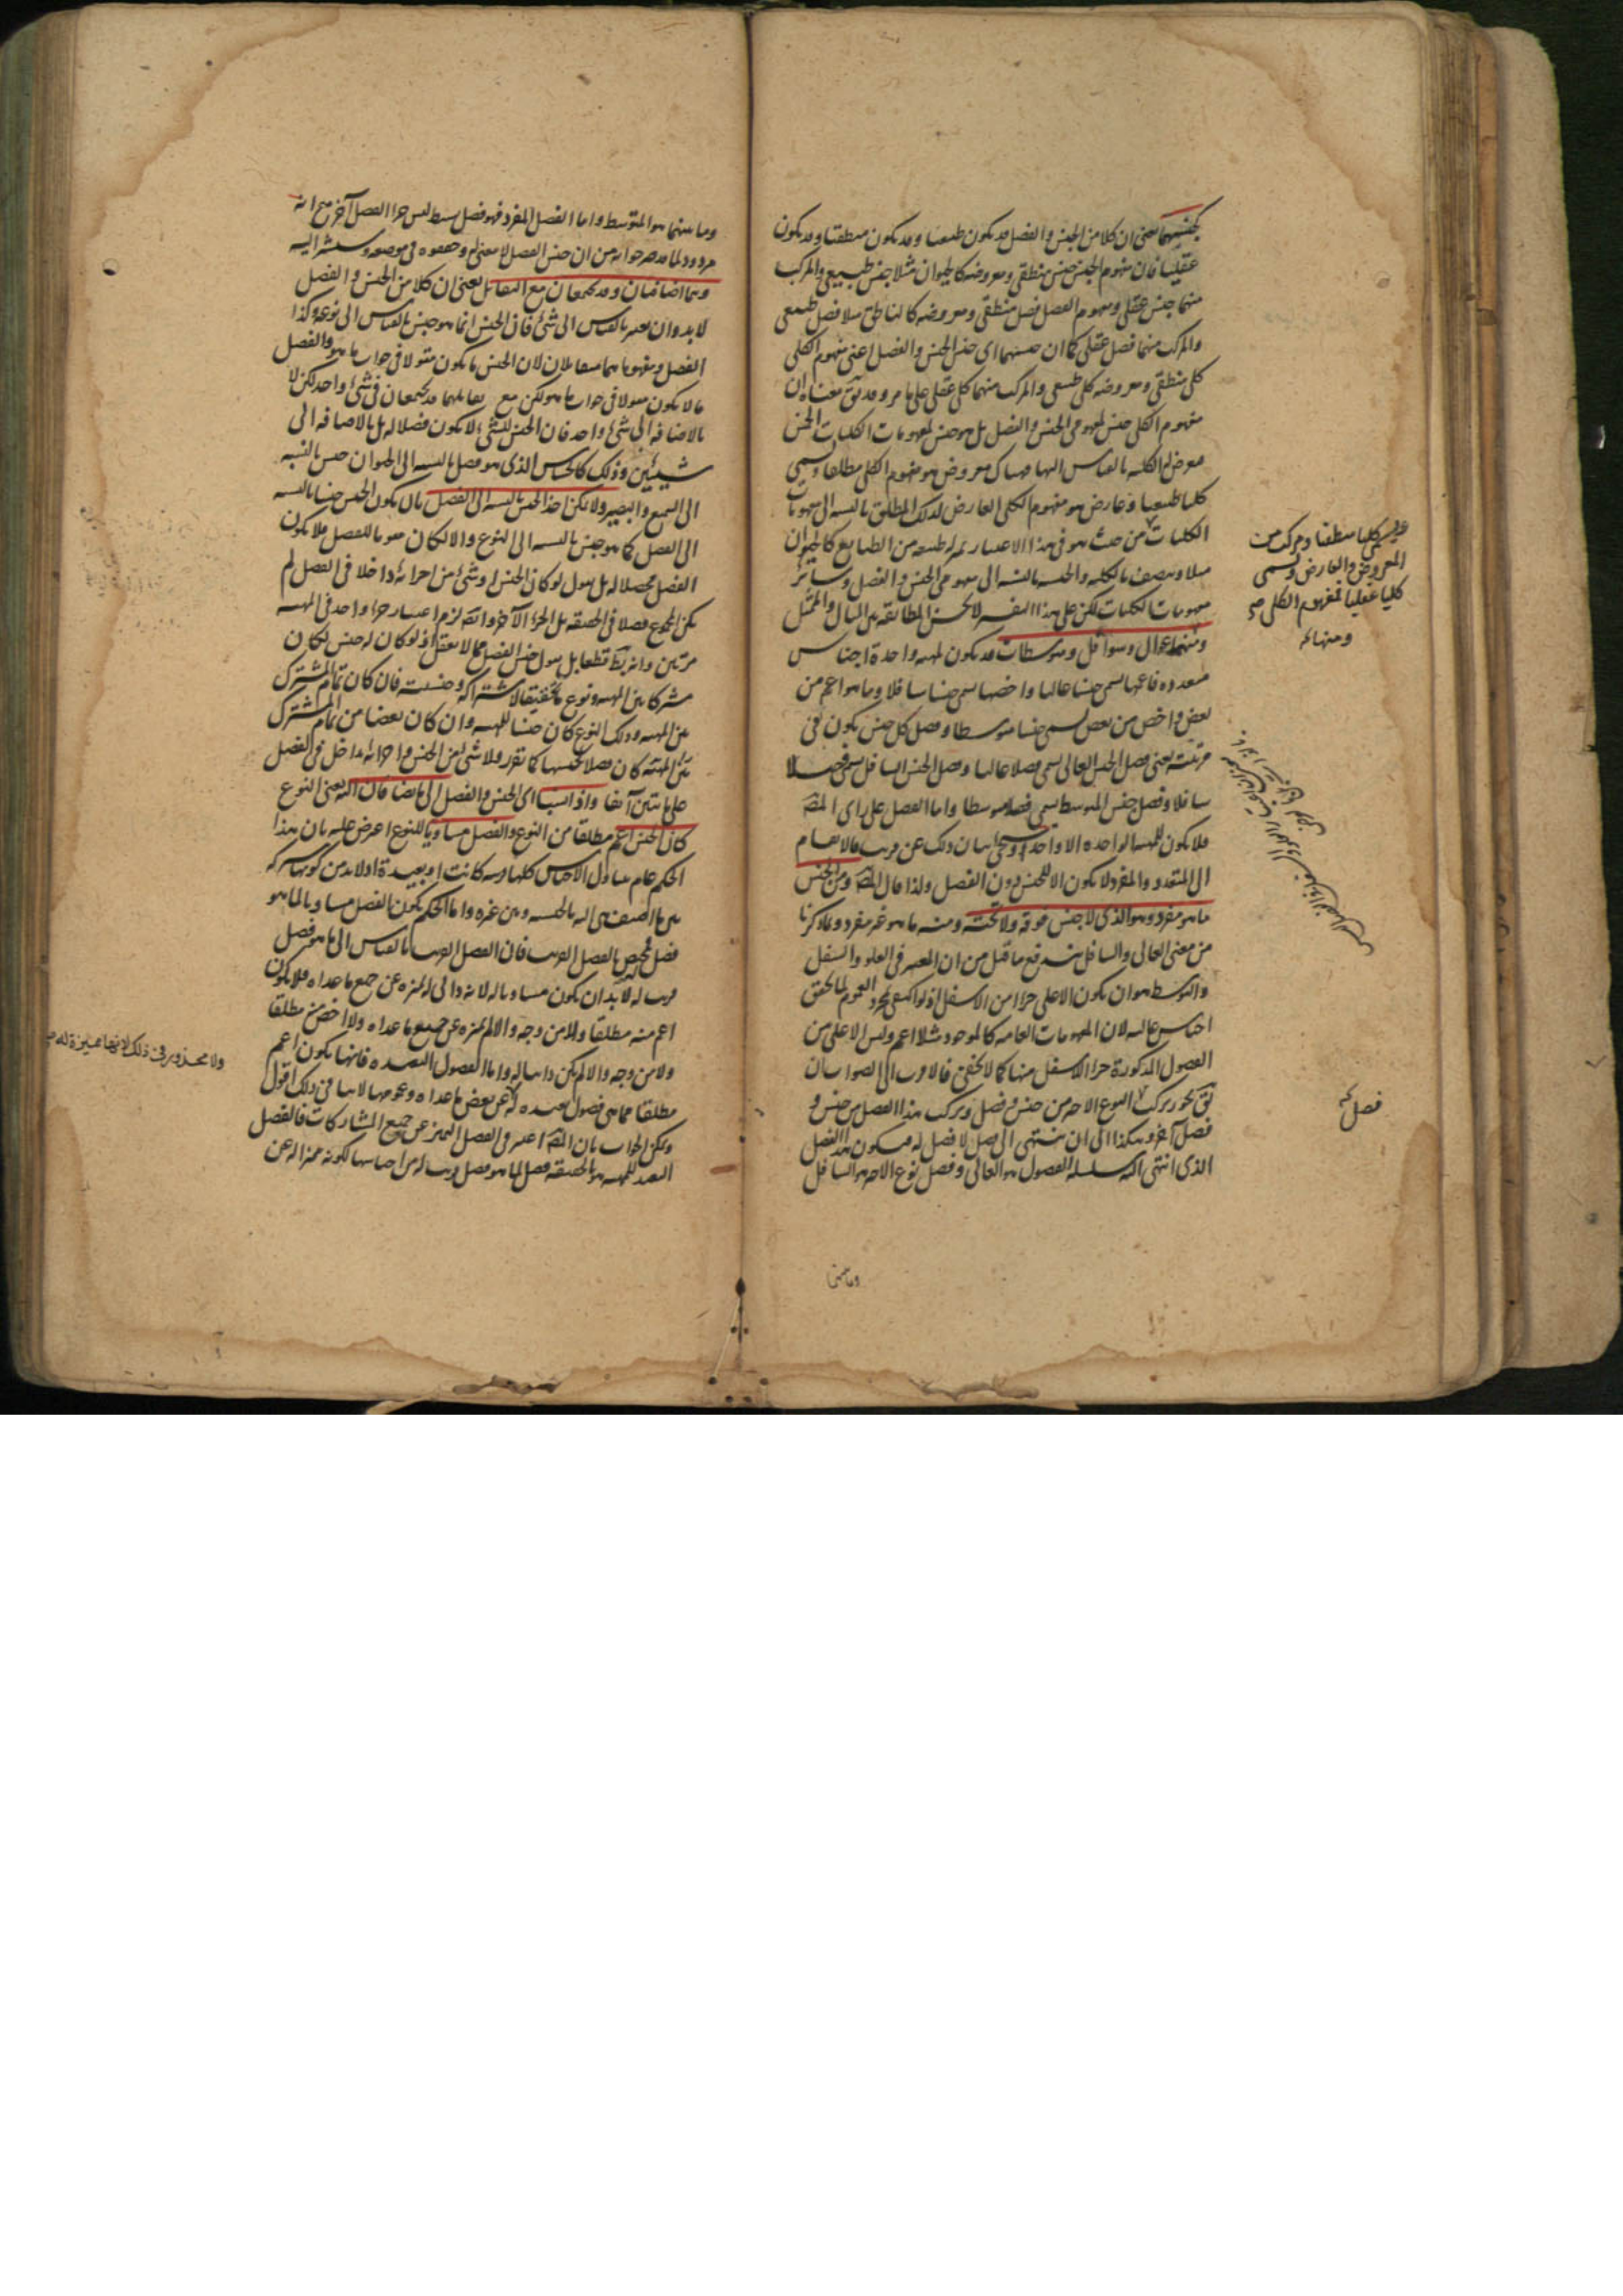 كجنسيهما يعنى ان كلا من الجنس والفصل قد يكون طبيعيا وقد يكون منطقيا وقد يكون
عقليا فان مفهوم الجنس جنس منطقى ومعروضه كالحيوان مثلا جنس طبيعى والمركب
منهما جنس عقلى ومفهوم الفصل فصل منطقى ومعروضه كالناطق مثلا فصل طبيعى
والمركب منهما فصل عقلى كما ان جنسيهما اى جنس الجنس والفصل اعنى مفهوم الكلى
كلى منطقى ومعروضه كلى طبيعى والمركب منهما كلى عقلى على ما مر وقد يق معناه ان
مفهوم الكلى جنس لمفهومى الجنس والفصل بل هو جنس لمفهومات الكليات الخمس
معرض له الكليه بالقياس اليها فهناك معروض هو مفهوم الكلى مطلقا ويسمى
كليا طبيعيا وعارض هو مفهوم الكلى العارض لذلك المطلق بالنسبه الى مفهومات
الكليات من حيث هو فى هذا الاعتبار بمنزله طبيعه من الطبايع كالحيوان
مثلا ويتصف بالكليه والجنسيه بالنسبه الى مفهومى الجنس والفصل وسائر
مفهومات الكليات لكن على هذا التفسير لا يحسن المطابقه بين المثال والممثل
ومنهما عوال وسوافل ومتوسطات قد يكون لمهيه واحدة اجناس
متعدده فاعمها يسمى جنسا عاليا واخصها يسمى جنسا سافلا وما هو اعم من
بعض واخص من بعض يسمى جنسا متوسطا وفصل كل جنس يكون فى
مرتبته يعنى فصل الجنس العالى يسمى فصلا عاليا وفصل الجنس السافل يسمى فصلا
سافلا وفصل جنس المتوسط يسمى فصلا متوسطا واما الفصل على راى المصـ
فلا يكون للمهيه الواحده الا واحدا وسيجئ بيان ذلك عن قريب فالانقسام
الى المتعدد والمفرد لا يكون الا للجنس دون الفصل ولذا قال المصـ ومن الجنس
ما هو مفرد وهو الذى لا جنس فوقه ولا تحته ومنه ما هو غير مفرد وبما ذكرنا
من معنى العالى والسافل يندفع ما قيل من ان المعتبر فى العلو والسفل
والتوسط هو ان يكون الاعلى جزءا من الاسفل اذ لو اكتفى بمجرد العموم لما تحقق
اجناس عاليه لان المفهومات العامه كالموجود مثلا اعم وليس الاعلى من
الفصول المذكورة جزء الاسفل منها كما لا يخفى فالاقرب الى الصواب ان
يق يجوز تركب النوع الاخير من جنس وفصل وتركب هذا الفصل من جنس و
فصل آخر وهكذا الى ان ينتهى الى فصل لا فصل له فيكون هذا الفصل
الذى انتهى اليه سلسله الفصول هو العالى وفصل نوع الاخير هو السافل
وما بينهما
ويسمى كليا منطقيا ومركب من
المعروض والعارض ويسمى
كليا عقليا فمفهوم الكلى صح
ومنها
فصل
وما بينهما هو المتوسط واما الفصل المفرد فهو فصل بسيط ليس جزءا لفصل آخر مع انه
مردود لما مر من ان جنس الفصل لا معنى له وحققوه فى موضعه وسنشير اليه
وهما اضافيان وقد يجتمعان مع التقابل يعنى ان كلا من الجنس والفصل
لا بد وان يعتبر بالقياس الى شئ فان الجنس انما هو جنس بالقياس الى نوعه وكذا
الفصل ومفهوماهما متقابلان لان الجنس ما يكون مقولا فى جواب ما هو والفصل
ما لا يكون مقولا فى جواب ما هو لكن مع تقابلهما قد يجتمعان فى شئ واحد لكن لا
بالاضافه الى شئ واحد فان الجنس للشئ لا يكون فصلا له بل بالاضافه الى
شيئين وذلك كالحساس الذى هو فصل بالنسبه الى الحيوان جنس بالنسبه
الى السميع والبصير ولا يمكن اخذ الجنس بالنسبه الى الفصل بان يكون الجنس جنسا بالنسبه
الى الفصل كما هو جنس بالنسبه الى النوع والا لكان مقوما للفصل فلا يكون
الفصل محصلا له بل نقول لو كان الجنس او شئ من اجزائه داخلا فى الفصل لم
يكن المجموع فصلا فى الحقيقه بل الجزء الآخر وايضا لزم اعتبار جزء واحد فى المهيه
مرتين وانه بط قطعا بل نقول جنس الفصل مما لا يعقل اذ لو كان له جنس لكان
مشتركا بين المهيه ونوع ما تحقيقا لاشتراكه وجنسيته فان كان تمام المشترك
بين المهيه وذلك النوع كان جنسا للمهيه وان كان بعضا من تمام المشترك
بين المهيه كان فصلا لجنسها كما تقرر فلا شئ من الجنس واجزائه داخل فى الفصل
على ما تبين آنفا واذا نسبا اى الجنس والفصل الى ما يضافان اليه يعنى النوع
كان الجنس اعم مطلقا من النوع والفصل مساويا للنوع اعترض عليه بان هذا
الحكم عام يتناول الاجناس كلها قريبه كانت او بعيدة اذ لا بد من كونها مشتركه
بين ما اضيف هى اليه بالجنسيه وبين غيره واما الحكم بكون الفصل مساويا لما هو
فصل له فمختص بالفصل القريب فان الفصل القريب بالقياس الى ما هو فصل
قريب له لا بد ان يكون مساويا له لانه ذاتى له يميزه عن جميع ما عداه فلا يكون
اعم منه مطلقا ولا من وجه والا لم يميزه عن جميع ما عداه ولا اخص منه مطلقا
ولا من وجه والا لم يكن ذاتيا له واما الفصول البعيده فانها يكون اعم
مطلقا مما هى فصول بعيده له عن بعض ما عداه وعمومها لا ينافى ذلك اقول
ويمكن الجواب بان المصـ اعتبر فى الفصل التميز عن جميع المشاركات فالفصل
البعيد للمهيه هو بالحقيقه فصل لما هو فصل قريب له من اجناسها لكونه مميزا له عن
ولا محذور فى ذلك لانها مميزة له صح